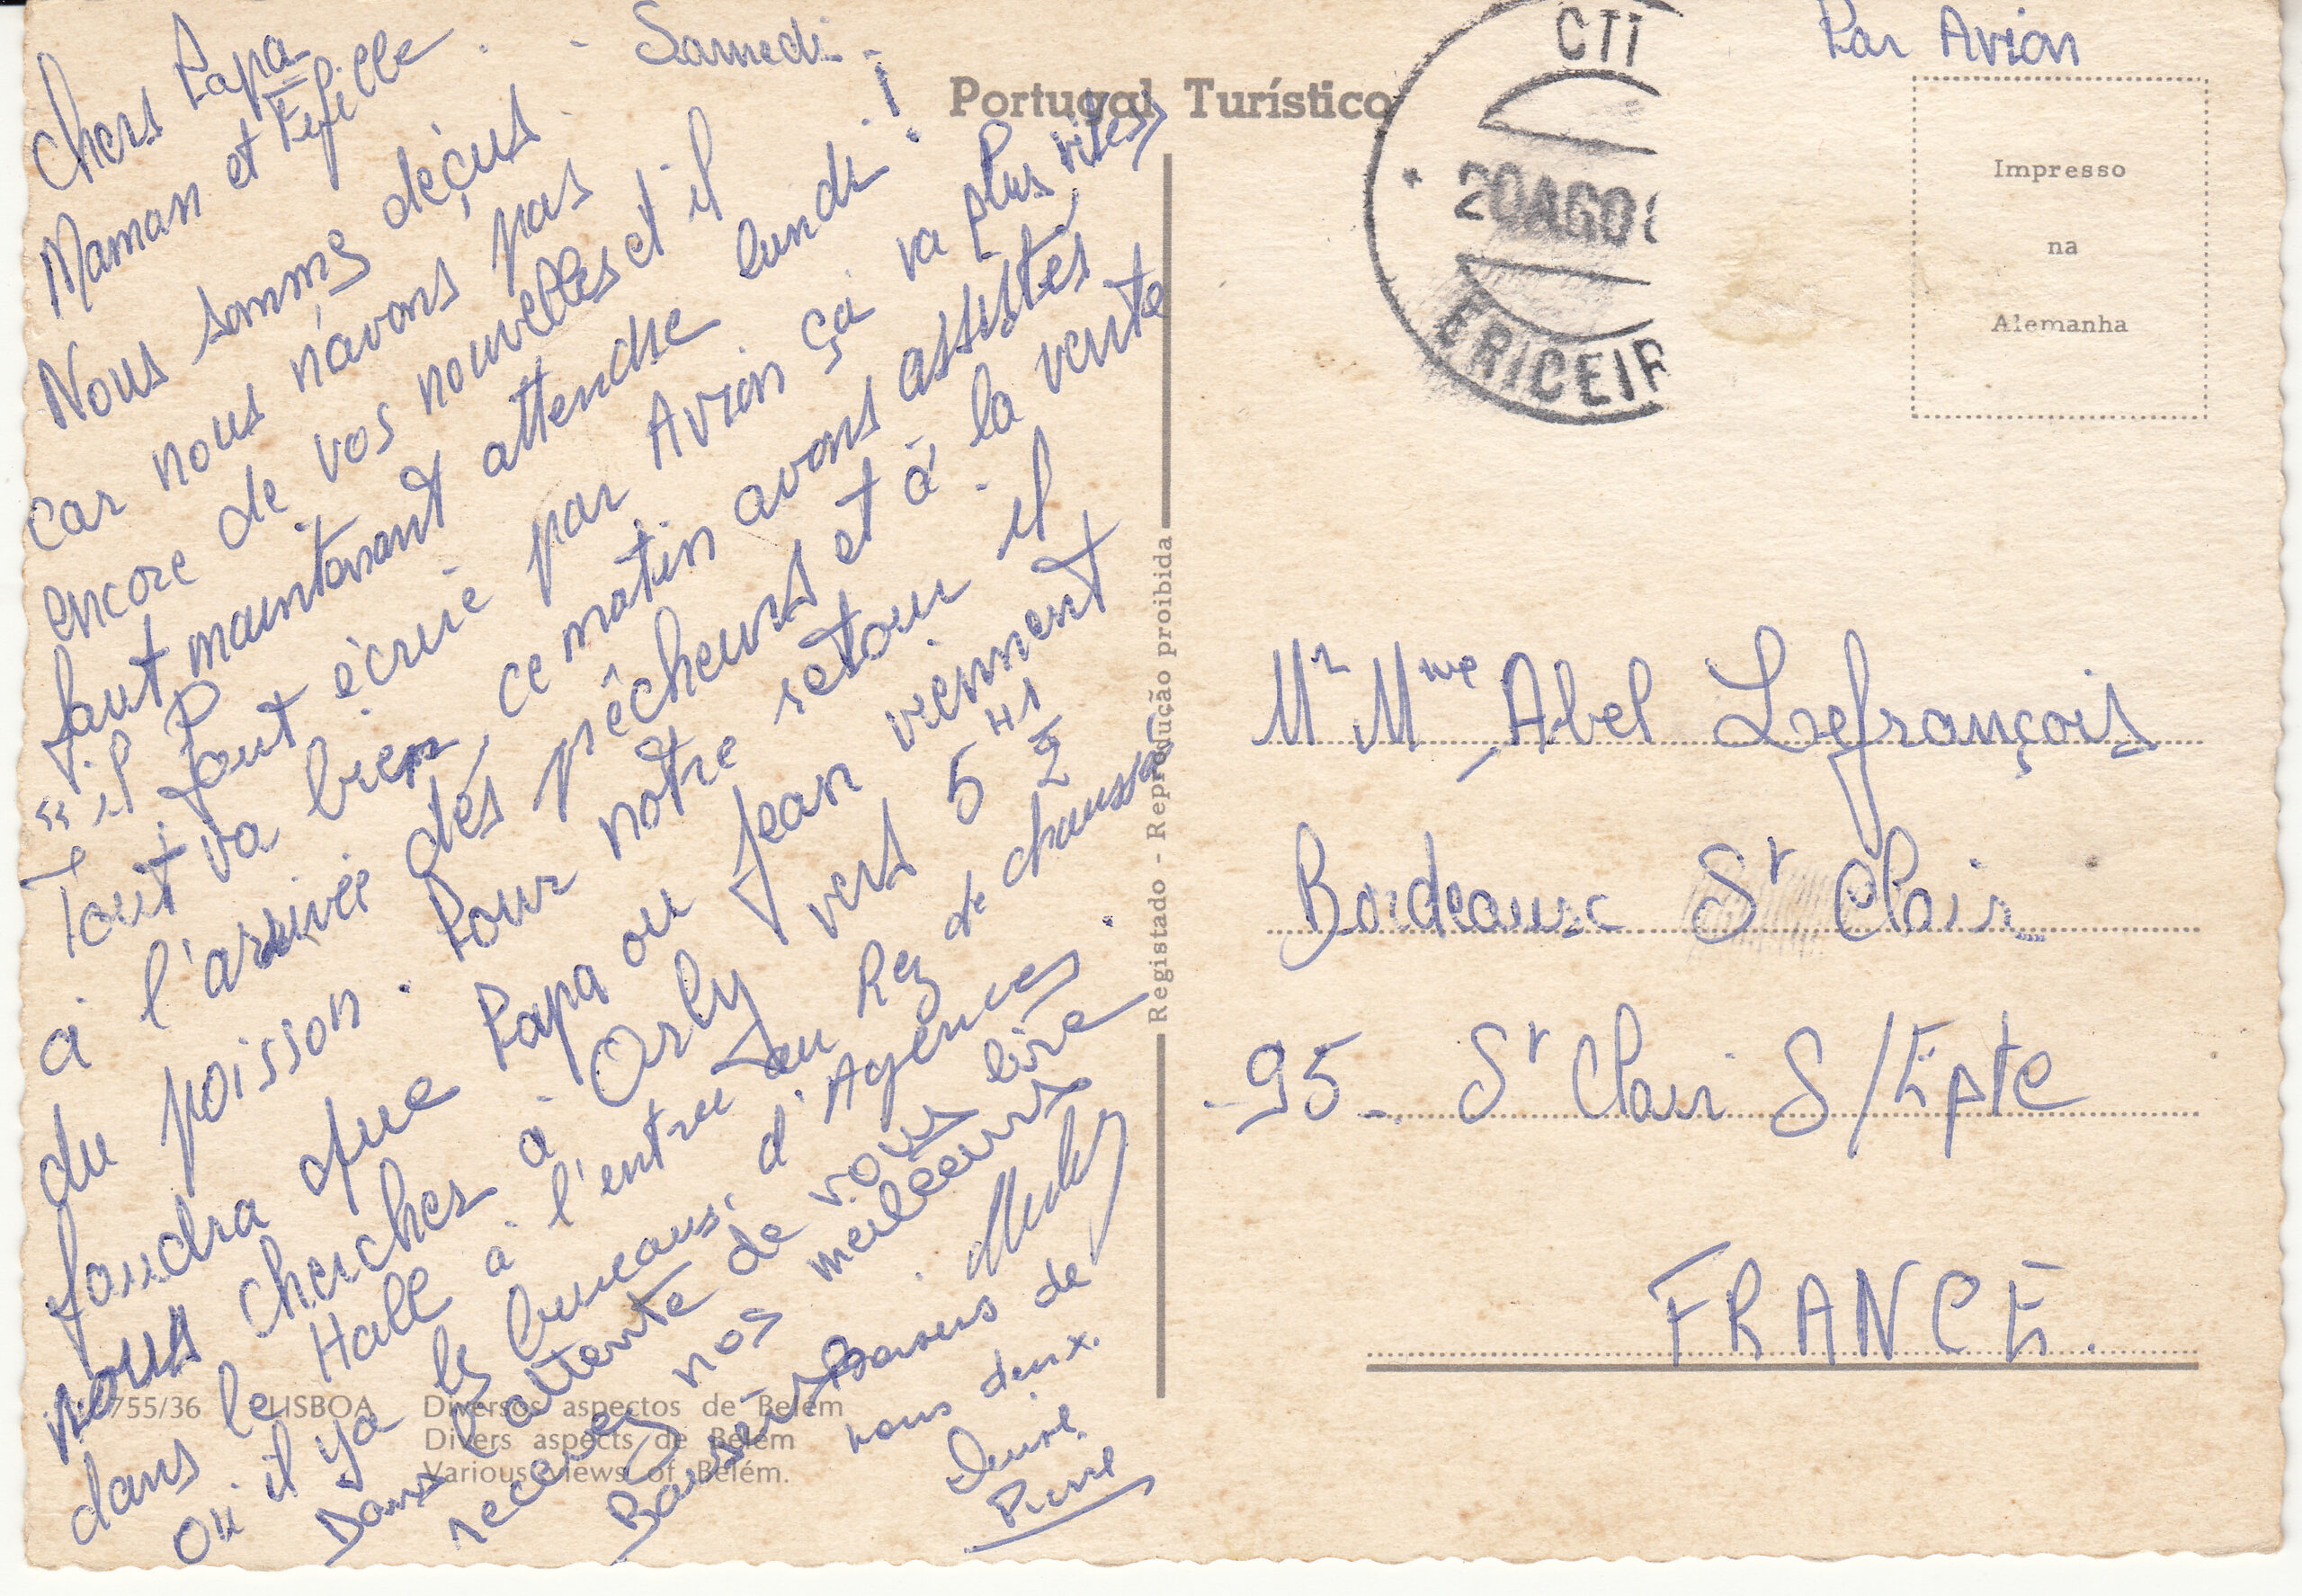 Samedi
Chers Papa
Maman et Fifille
Nous sommes déçus
car nous n'avons pas
encore de vos nouvelles et il
faut maintenant attendre lundi !
"il faut écrire par Avion ça va plus vite"
Tout va bien, ce matin avons assistés
à l'arrivée des pêcheurs et à la vente
du poisson. Pour notre retour il
faudra que Papa ou Jean viennent
nous chercher à Orly vers 5 Hs ½
dans le Hall à l'entrée au Rez de chaussée
où il y a les bureaux d'Agences.
Dans l'attente de vous lire
recevez nos meilleurs
Baisers
Baisers de
nous deux.
Pierre
Portugal Turístico
755/36 LISBOA Diversos aspectos de Belém
Divers aspècts de Belém
Various views of Belém.
Registado - Reprodução proibida
Par Avion
CTT
20 AGO
ERICEIR
Impresso
na
Alemanha
Mr Mme Abel Lefrançois
Bordeaux St Clair
95 - St Clair S/Epte
FRANCE.